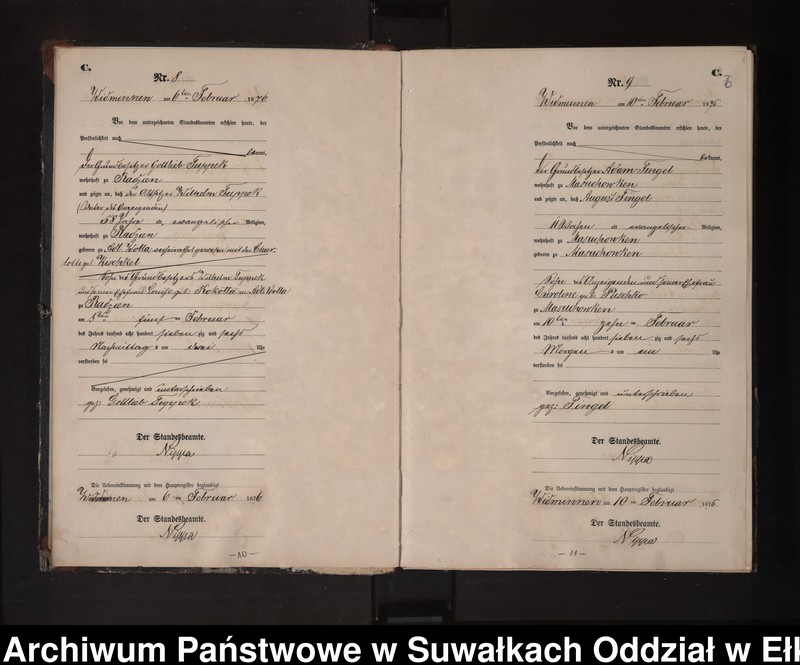 C.
Nr. 8
Widminnen am 6ten Februar 1876
Vor dem unterzeichneten Standesbeamten erschien heute, der
Persönlichkeit nach
kannt,
der Grundbesitzer Gottlieb
wohnhaft zu Radzien
und zeigte an, daß der Altsitzer Wilhelm
(Vater des Anzeigenden)
58 Jahre alt, evangelischer Religion,
wohnhaft zu Radzien
geboren zu Adl. Wolla, verheirathet gewesen mit der Char-
lotte geb.
Sohn des Grundbesitzers Wilhelm
und seiner Ehefrau Louise geb. Kokotta in Adl. Wolla
zu Radzien
am 5ten fünf Februar
des Jahres tausend acht hundert sieben zig und sechs
Nachmittag s um zwei Uhr
verstorben sei
Vorgelesen, genehmigt und unterschrieben
gez: Gottlieb
Der Standesbeamte.
Nippa
Die Uebereinstimmung mit dem Hauptregister beglaubigt
Widminnen am 6 ten Februar 1876
Der Standesbeamte.
Nippa
—10—
C.
Nr. 9
Widminnen am 10ten Februar 1876
Vor dem unterzeichneten Standesbeamten erschien heute, der
Persönlichkeit nach
kannt,
der Grundbesitzer Adam Fingel
wohnhaft zu Masuchowken
und zeigte an, daß August Fingel
11 Wochen alt evangelischer Religion,
wohnhaft zu Masuchowken
geboren zu Masuchowken
Sohn des Anzeigenden und seiner Ehefrau
Caroline geb. Paschko
zu Masuchowken
am 10ten zehn Februar
des Jahres tausend acht hundert sieben zig und sechs
Morgen s um ein Uhr
verstorben sei
Vorgelesen, genehmigt und unterschrieben
gez: Fingel
Der Standesbeamte.
Nippa
Die Uebereinstimmung mit dem Hauptregister beglaubigt
Widminnen am 10 ten Februar 1876
Der Standesbeamte.
Nippa
—11—
Archiwum Państwowe w Suwałkach Oddział w Eł